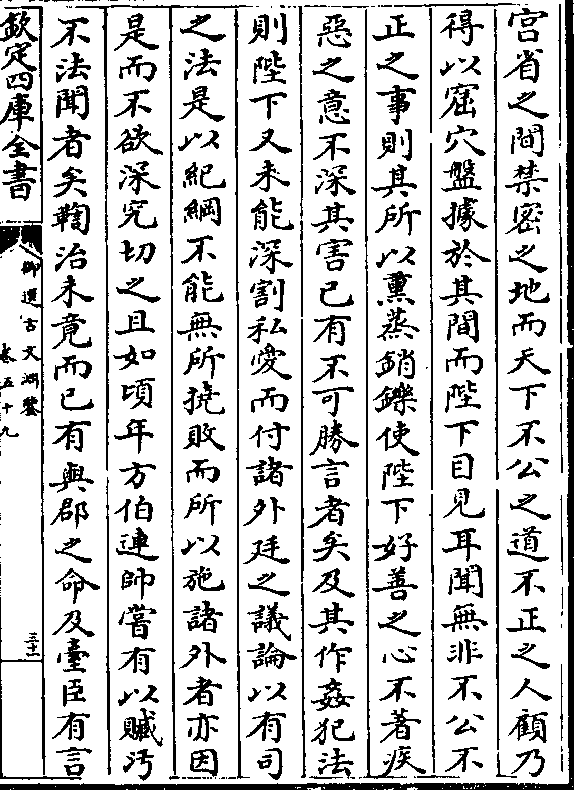 宫省之間禁密之地而天下不公之道不正之人顧乃
得以窟穴盤據於其間而陛下目見耳聞無非不公不
正之事則其所以熏蒸銷鑠使陛下好善之心不著疾
惡之意不深其害已有不可勝言者矣及其作姦犯法
則陛下又未能深割私愛而付諸外廷之議論以有司
之法是以紀綱不能無所撓敗而所以施諸外者亦因
是而不欲深究切之且如頃年方伯連帥嘗有以贓汚
不法聞者矣鞫治未竟而已有與郡之命及臺臣有言
欽定四庫全書
御選古文淵鑒
卷五十九
三十一